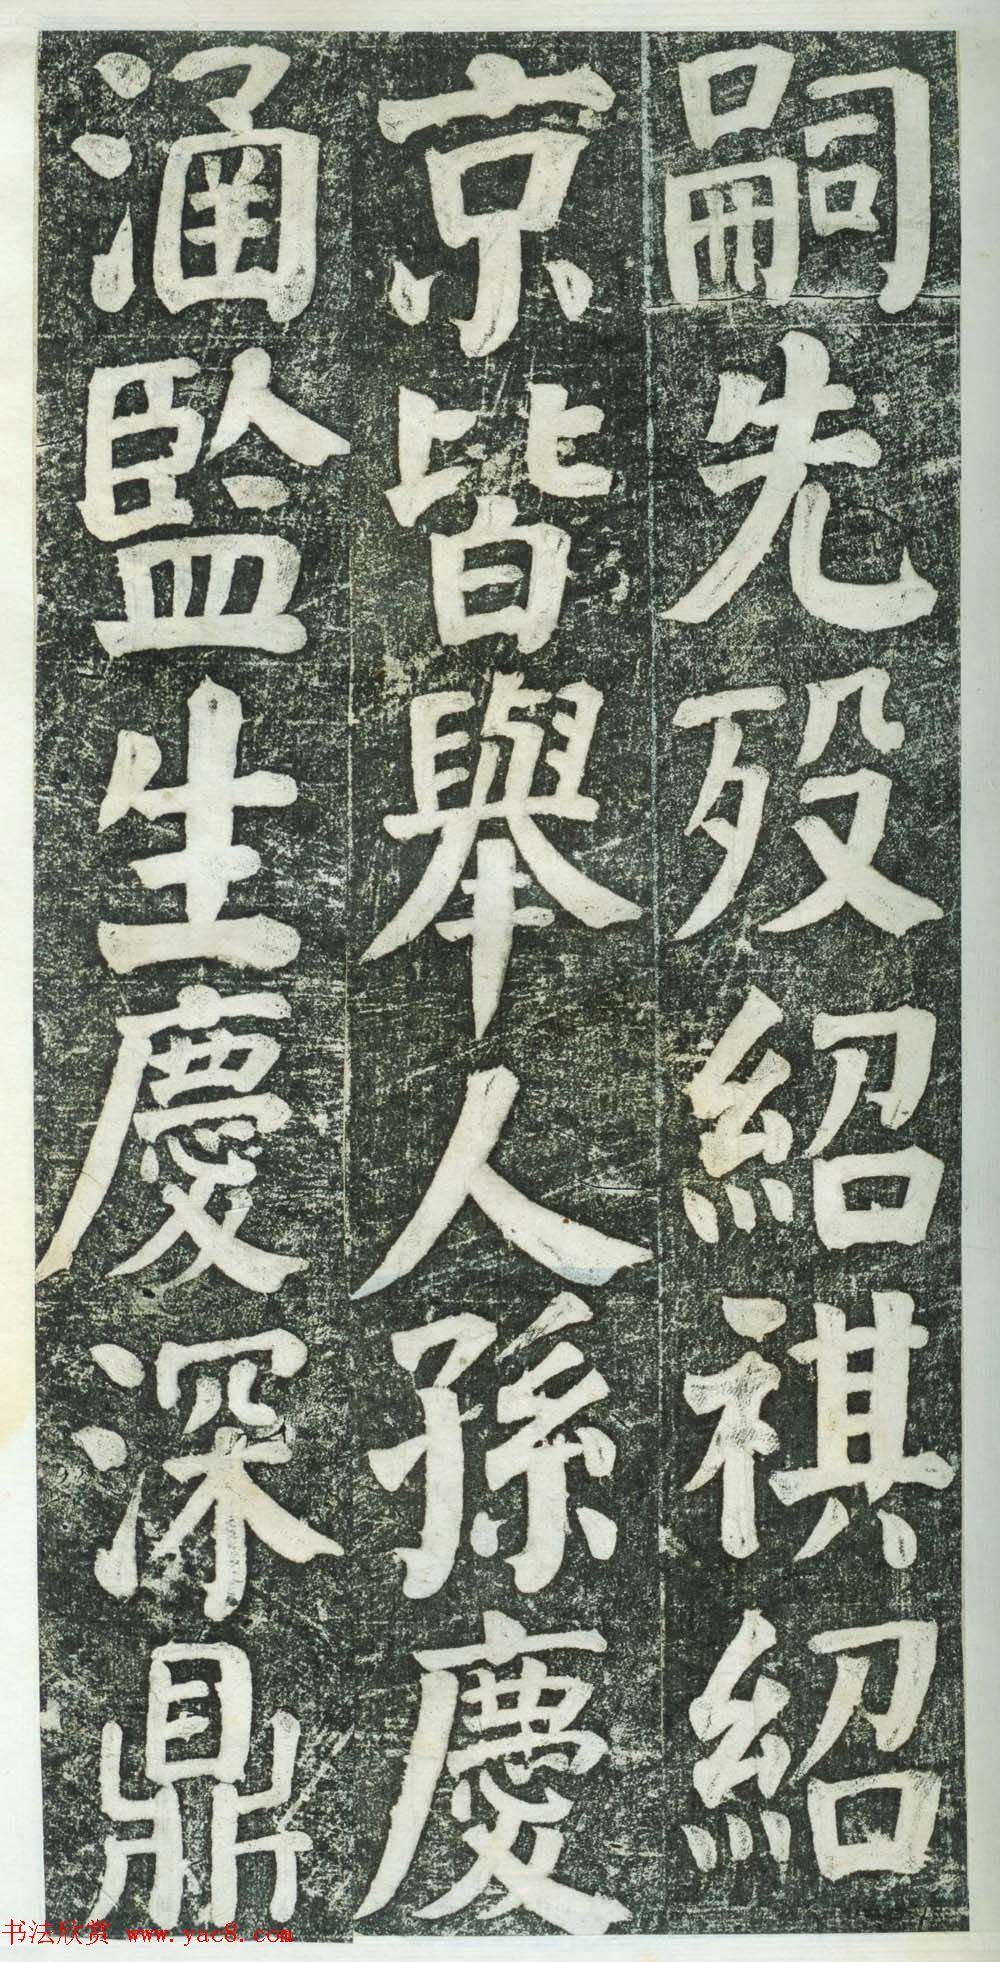 嗣先歿紹祺紹
京皆舉人孫慶
涵監生慶深鼎
书法欣赏 www.yac8.com